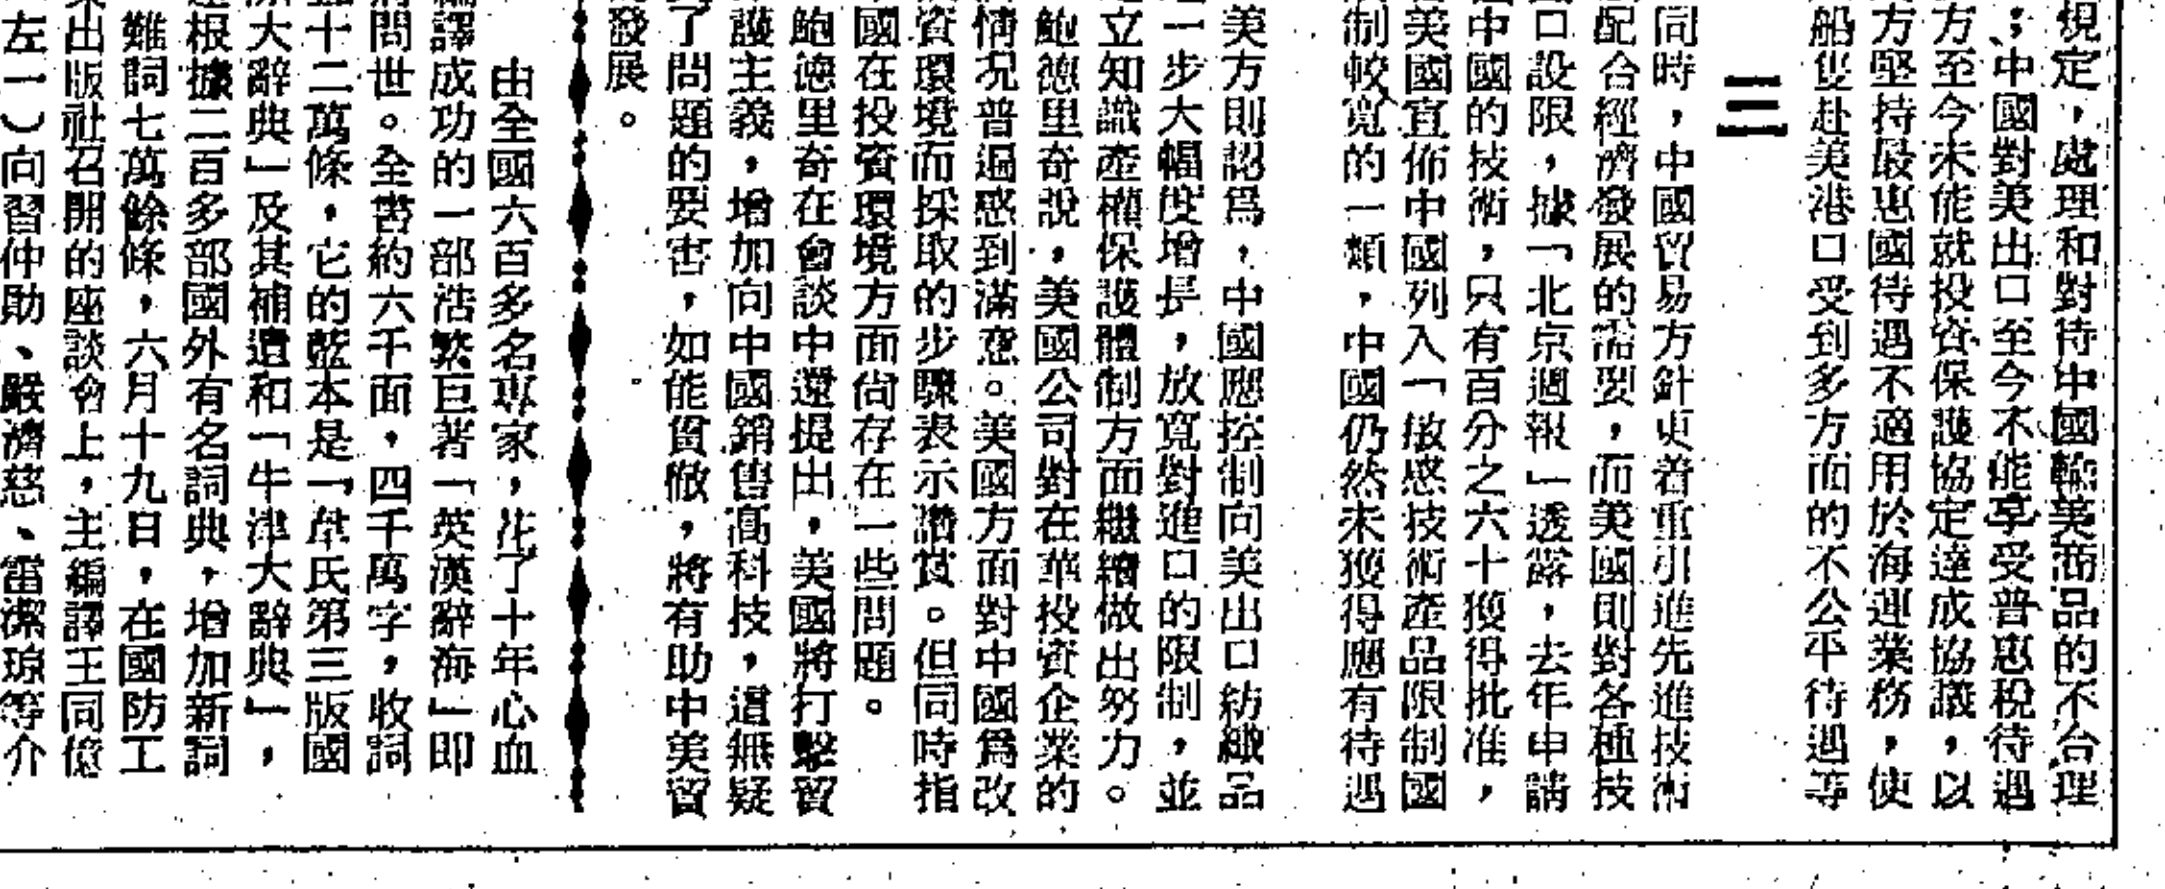 規定，處理和對待中國輸美商品的不合理
；中國對美出口至今不能享受普惠稅待遇
方至今未能就投資保護協定達成協議，以
方堅持最惠國待遇不適用於海運業務，使
船隻赴美港口受到多方面的不公平待遇等
三
同時，中國貿易方針更着重引進先進技術
配合經濟發展的需要，而美國則對各種技
口設限，據「北京週報」透露，去年申請
中國的技術，只有百分之六十獲得批准，
美國宣佈中國列入「敏感技術產品限制國
制較寬的一類，中國仍然未獲得應有待遇
美方則認爲，中國應控制向美出口紡織品
一步大幅度增長，放寬對進口的限制，並
立知識產權保護體制方面繼續做出努力。
鮑德里奇說，美國公司對在華投資企業的
情况普遍感到滿意。美國方面對中國爲改
資環境而採取的步驟表示讚賞。但同時指
國在投資環境方面尚存在一些問題。
鮑德里奇在會談中還提出，美國將打擊貿
護主義，增加向中國銷售高科技，這無疑
了問題的要害，如能貫徹，將有助中美貿
發展。
由全國六百多名專家，花了十年心血
編譯成功的一部浩繁巨著「英漢辭海」即
問世。全書約六千面，四千萬字，收詞
十二萬條，它的藍本是「韋氏第三版國
大辭典」及其補遺和「牛津大辭典」，
根據二百多部國外有名詞典，增加新詞
難詞七萬餘條，六月十九日，在國防工
出版社召開的座談會上，主編譯王同億
左一）向習仲勛、嚴濟慈、雷潔瓊等介